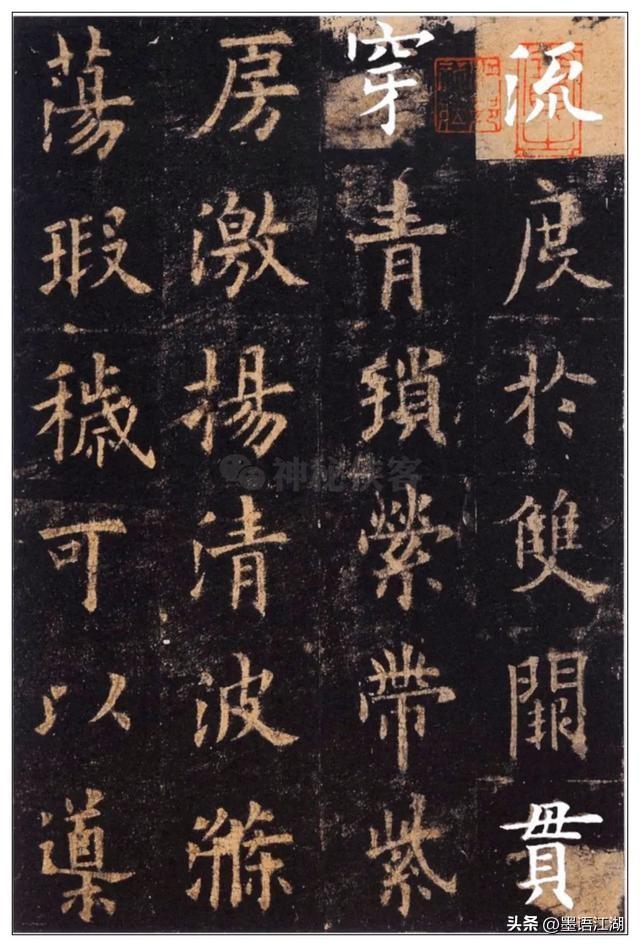 流度於雙闕貫
穿青瑣縈帶紫
房激揚清波滌
蕩瑕穢可以導
神秘侠客
头条 @墨语江湖